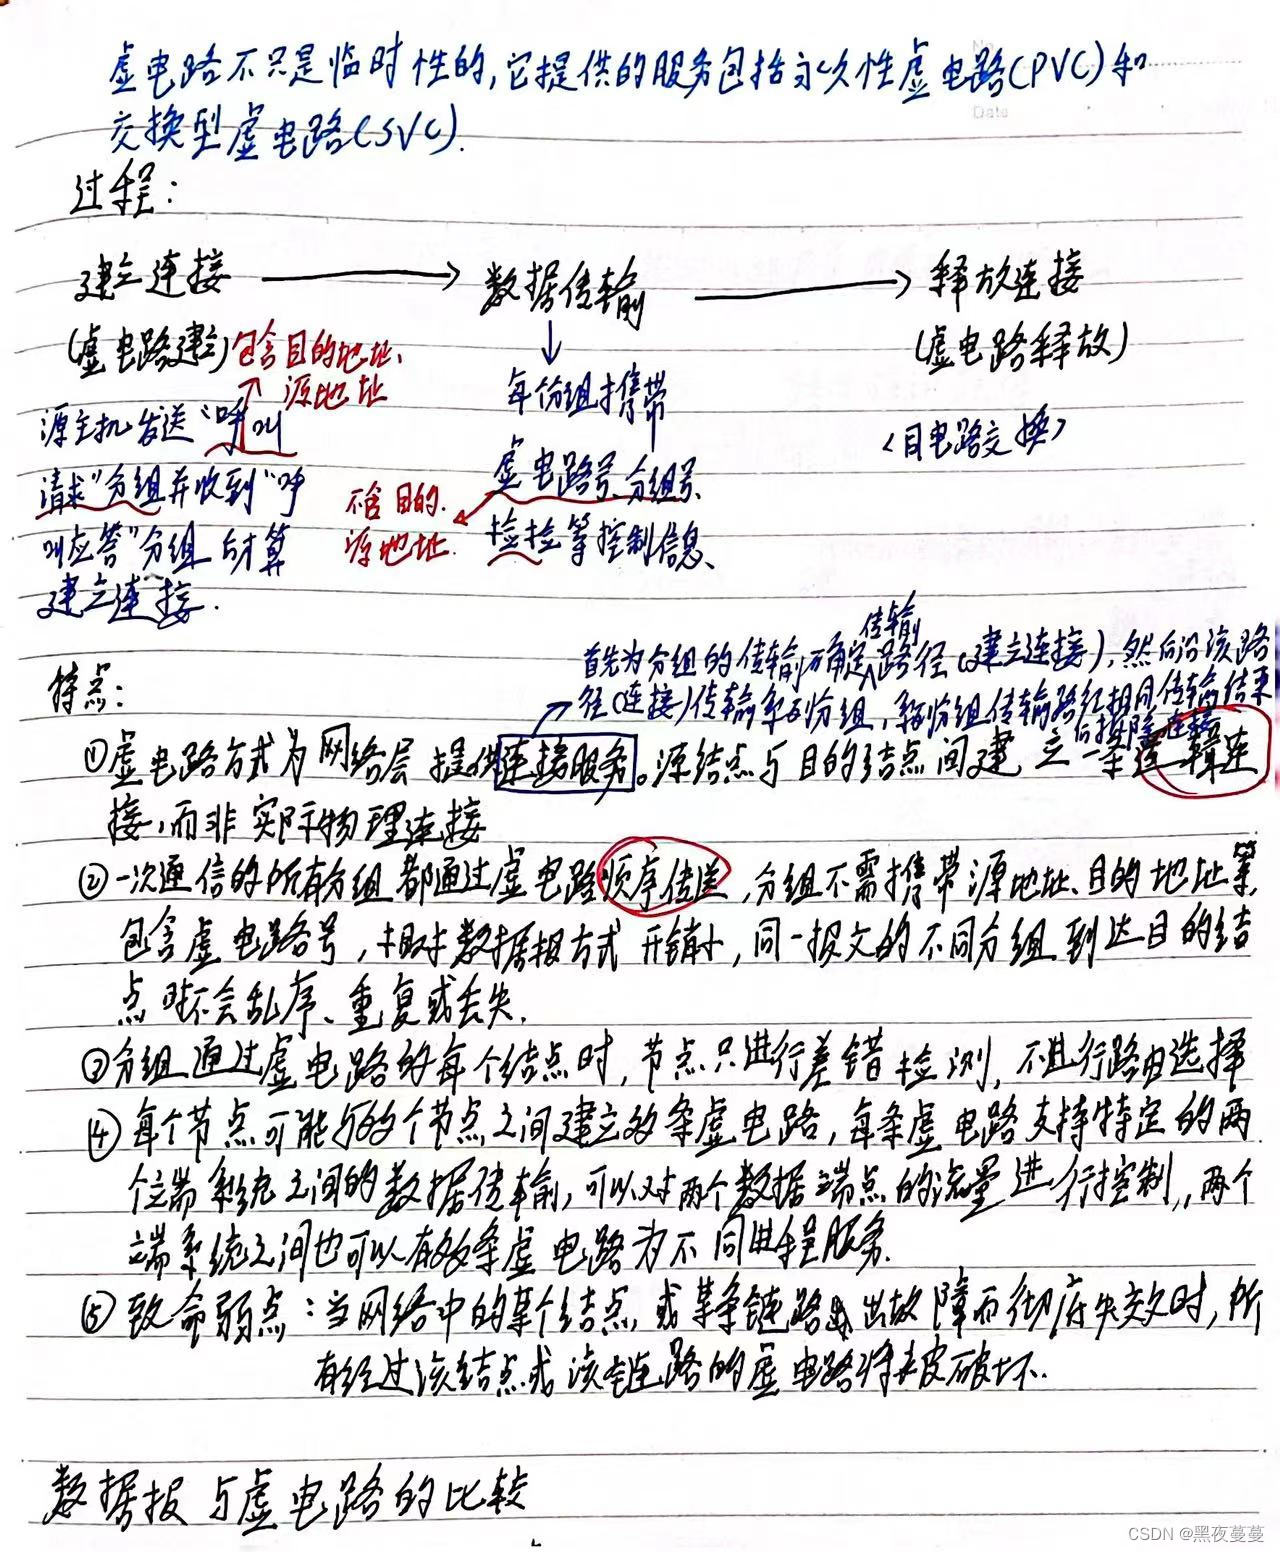 虚电路不只是临时性的,它提供的服务包括永久性虚电路(PVC)和
Date
交换型虚电路(SVC).
过程:
建立连接 → 数据传输 → 释放连接
(虚电路建立) 包含目的地址、
源地址
(虚电路释放)
源主机发送“呼叫
请求”分组并收到“呼
叫应答”分组后才算
建立连接.
每份组携带
虚电路号、分组号、
检验等控制信息、
不含目的、
源地址.
<目电路交换>
特点:
首先为分组的传输确定传输路径(建立连接),然后沿该路
径(连接)传输系列分组,每份组传输路径相同传输结束
后拆除连接
①虚电路方式为网络层提供连接服务。源结点与目的结点间建立一条逻辑连
接,而非实际物理连接
②一次通信的所有分组都通过虚电路顺序传送,分组不需携带源地址、目的地址等,
包含虚电路号,相对数据报方式开销小,同一报文的不同分组到达目的结
点时不会乱序、重复或丢失.
③分组通过虚电路的每个结点时,节点只进行差错检测,不进行路由选择
④每个节点可能与多个节点之间建立多条虚电路,每条虚电路支持特定的两
个端系统之间的数据传输,可以对两个数据端点的流量进行控制,,两个
端系统之间也可以有多条虚电路为不同进程服务.
⑤致命弱点:当网络中的某个结点或某条链路出故障而彻底失效时,所
有经过该结点或该链路的虚电路将被破坏.
数据报与虚电路的比较
CSDN @黑夜蔓蔓